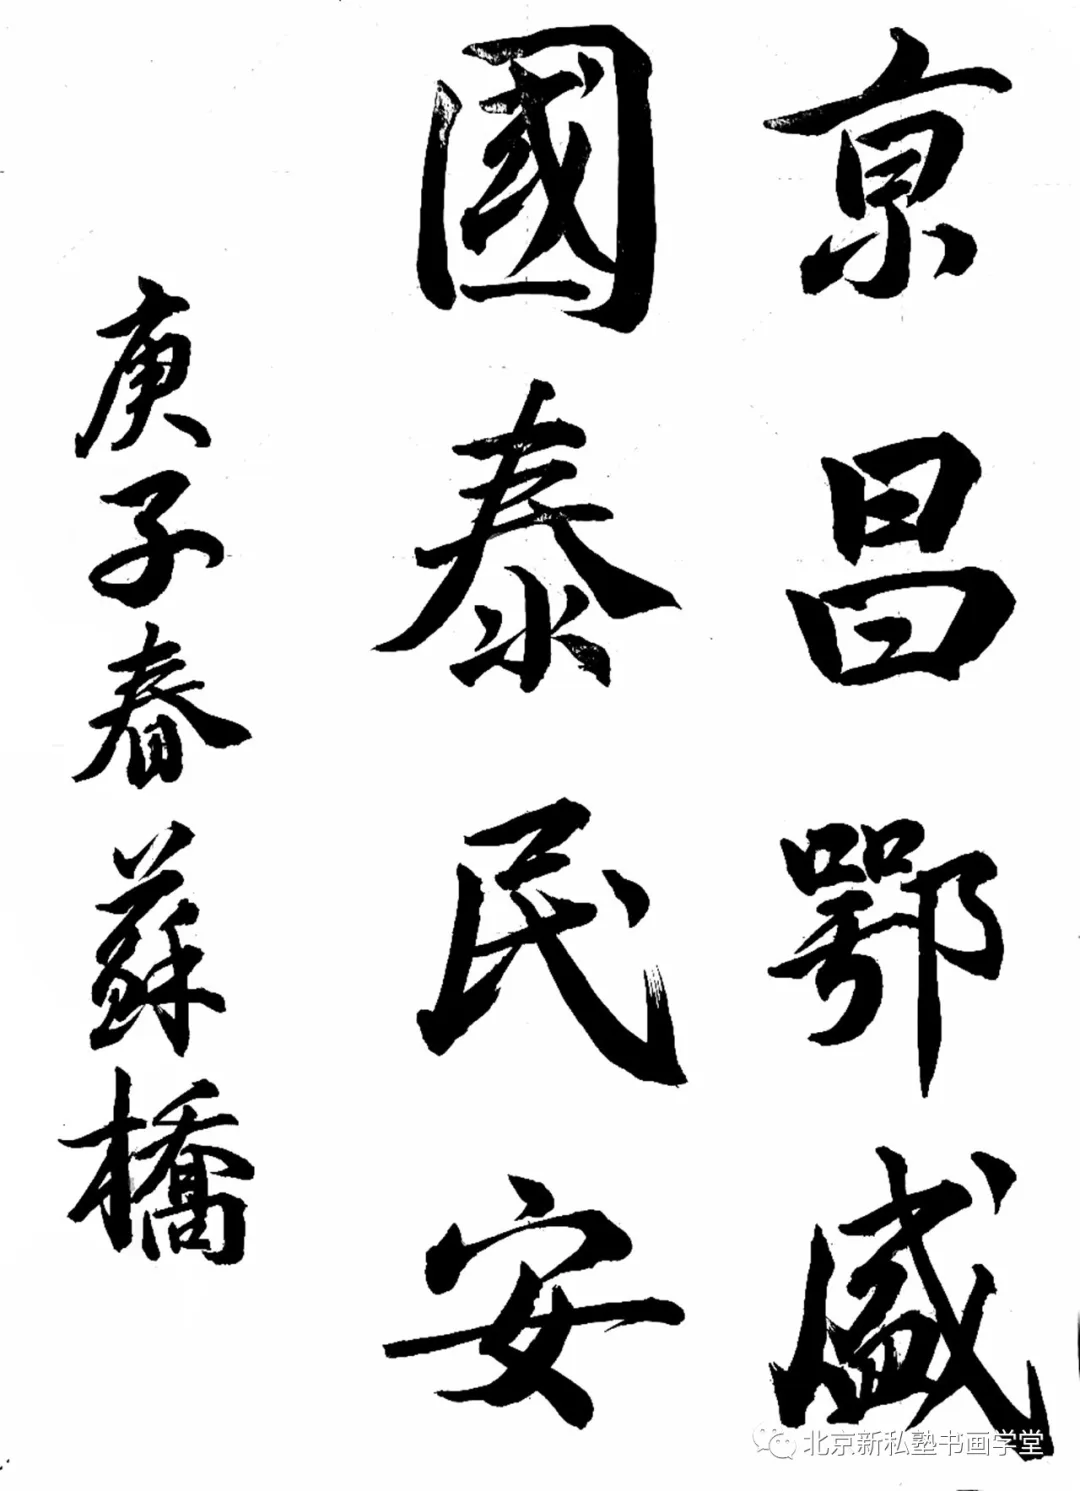 京昌鄂盛
國泰民安
庚子春蘇橋
北京新私塾书画学堂